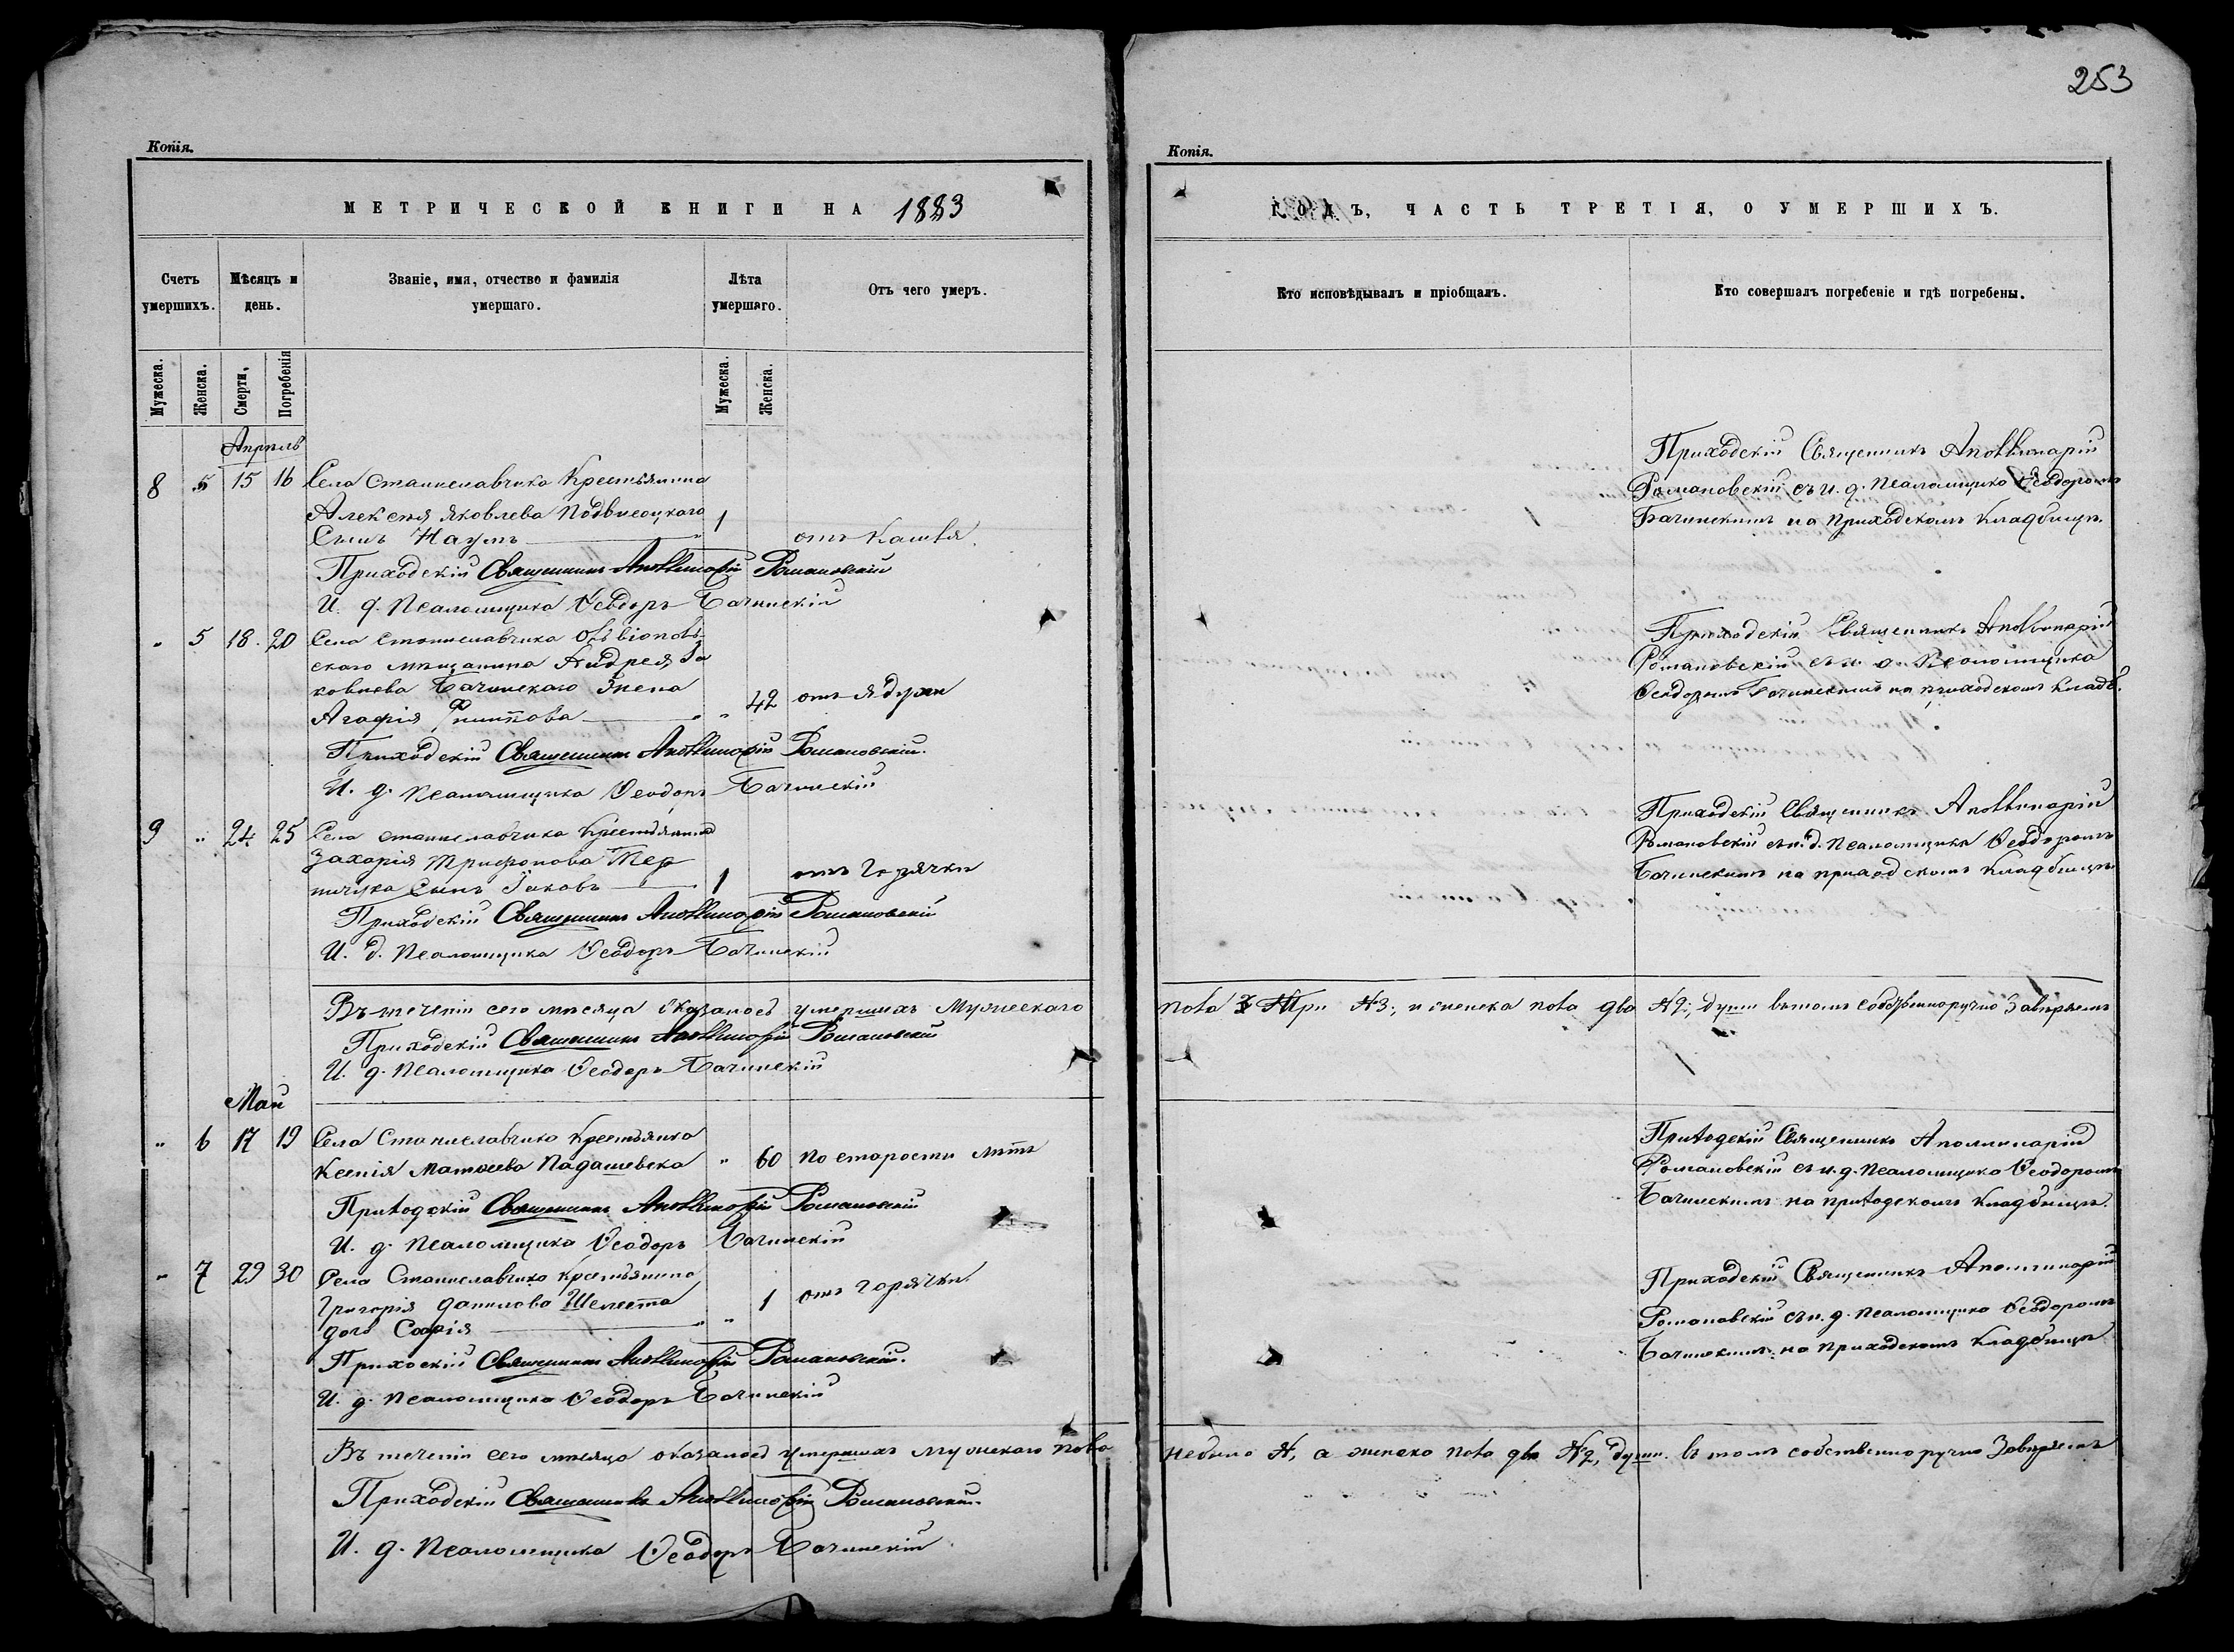 253
Копія.
МЕТРИЧЕСКОЙ КНИГИ НА 1883
Счетъ умершихъ.
Мѣсяцъ и день.
Званіе, имя, отчество и фамилія умершаго.
Лѣта умершаго.
Отъ чего умеръ.
Мужеска.
Женска.
Смерти,
Погребенія
Мужеска.
Женска.
Апрель
8 15 16 Села Станиславчика Крестьянина
Алексѣя Яковлева Подвысоцкаго 1
Сынъ Наумъ отъ Кашля.
Приходскій Священникъ Аполлинарій Романовскій
И. д. Псаломщика Ѳеодоръ Бачинскій
" 5 18. 20 Села Станиславчика
скаго мѣщанина Андрея Іа
ковлева Бачинскаго Жена
Агафія Филиппова " 42 отъ ядухи
Приходскій Священникъ Аполлинарій Романовскій.
И. д. Псаломщика Ѳеодоръ Бачинскій
9 " 24 25 Села Станиславчика Крестьянина
Захарія Трифонова
Сынъ Іаковъ 1 отъ Горячки
Приходскій Священникъ Аполлинарій Романовскій
И. д. Псаломщика Ѳеодоръ Бачинскій
Въ теченіи сего мѣсяца оказалось умершихъ Мужескаго
Приходскій Священникъ Аполлинарій Романовскій
И. д. Псаломщика Ѳеодоръ Бачинскій
Май
" 6 17 19 Села Станиславчика Крестьянка
Ксенія Матѳеева Падашевска " 60 по старости лѣтъ
Приходскій Священникъ Аполлинарій Романовскій
И. д. Псаломщика Ѳеодоръ Бачинскій
" 7 29 30 Села Станиславчика Крестьянина
Григорія Данилова Шелеста 1 отъ горячки.
дочь Софія
Прихоскій Священникъ Аполлинарій Романовскій.
И. д. Псаломщика Ѳеодоръ Бачинскій
Въ теченіи сего мѣсяца оказалось умершихъ мужскаго пола
Приходскій Священникъ Аполлинарій Романовскій.
И. д. Псаломщика Ѳеодоръ Бачинскій.
Копія.
ГОДЪ, ЧАСТЬ ТРЕТІЯ, О УМЕРШИХЪ.
Кто исповѣдывалъ и пріобщалъ.
Кто совершалъ погребеніе и гдѣ погребены.
Приходскій Священникъ Аполлинарій
Романовскій съ и. д. псаломщика Ѳеодоромъ
Бачинскимъ на приходскомъ Кладбищѣ.
Приходскій Священникъ Аполлинарій
Романовскій съ и. д. Псаломщика
Ѳеодоромъ Бачинскимъ на приходскомъ Кладб.
Приходскій Священникъ Аполлинарій
Романовскій съ и. д. Псаломщика Ѳеодоромъ
Бачинскимъ на приходскомъ Кладбищѣ
пола три №3; и женска пола два №2; души въ томъ собственноручно Завѣряемъ
Приходскій Священникъ Аполлинарій
Романовскій съ и. д. Псаломщика Ѳеодоромъ
Бачинскимъ на приходскомъ Кладбищѣ.
Приходскій Священникъ Аполлинарій
Романовскій съ и. д. псаломщика Ѳеодоромъ
Бачинскимъ на приходскомъ Кладбищѣ
небыло №, а женска пола два №2, души. въ томъ собственно ручно Завѣряемъ